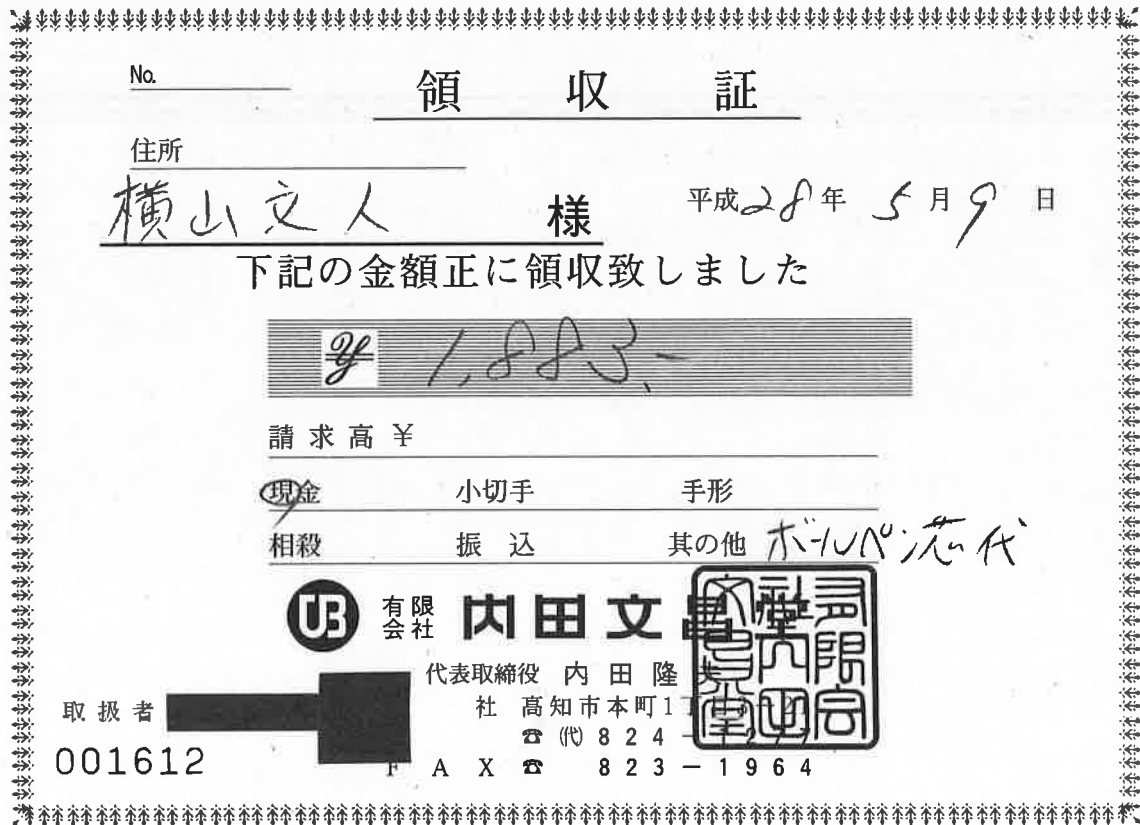 No.
領収証
住所
横山文人 様
平成28年5月9日
下記の金額正に領収致しました
¥ 1,883.-
請求高 ¥
現金 小切手 手形
相殺 振込 其の他 ボールペン芯代
UB 有限会社 内田文昌堂
代表取締役 内田隆
社 高知市本町1
☎ (代) 824-
取扱者
001612
FAX ☎ 823-1964